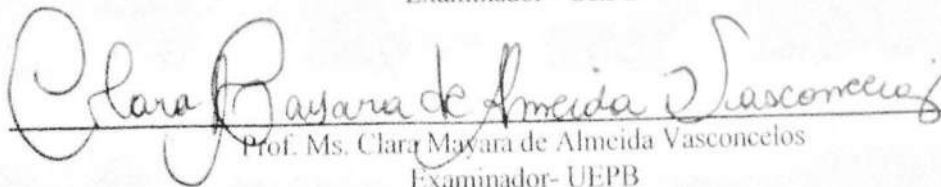 Examinador - UEPB
Clara Mayara de Almeida Vasconcelos
Prof. Ms. Clara Mayara de Almeida Vasconcelos
Examinador- UEPB